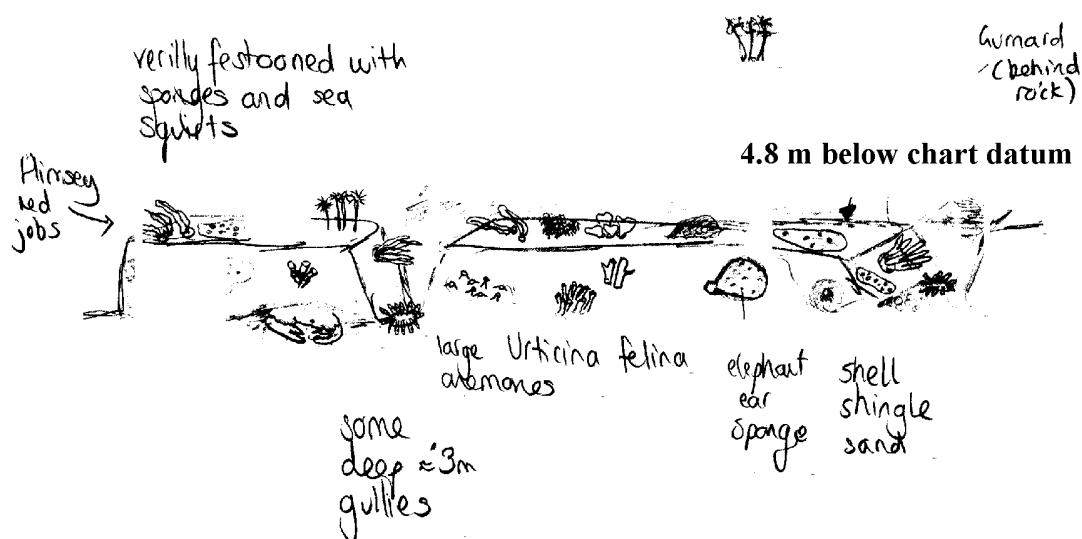 verilly festooned with
sponges and sea
squirts
Gurnard
(behind
rock)
4.8 m below chart datum
Flimsey
red
jobs
large Urticina felina
anemones
elephant
ear
sponge
shell
shingle
sand
some
deep ≈ 3m
gullies